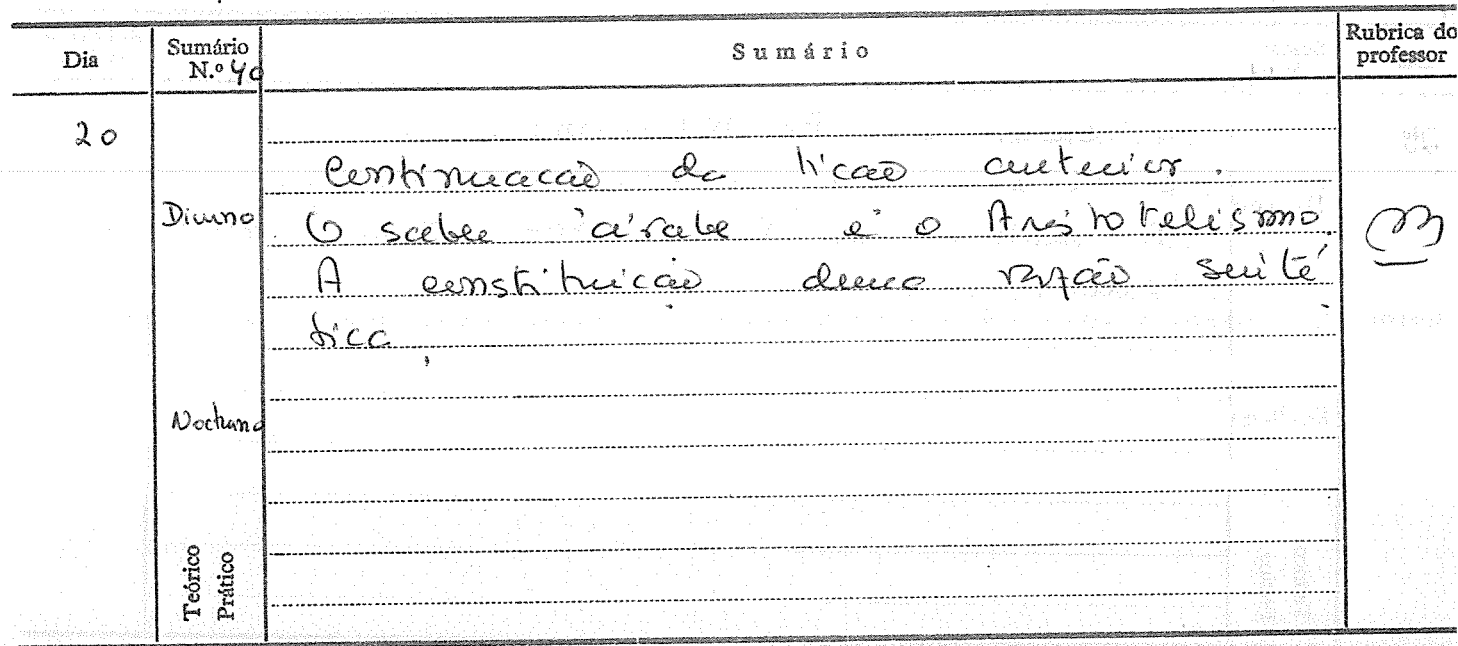 Dia
Sumário N.º 40
Sumário
Rubrica do professor
20
Diurno
Continuação da lição anterior.
O saber árabe e o Aristotelismo.
A constituição duma razão sinté
tica.
Nocturno
Teórico
Prático